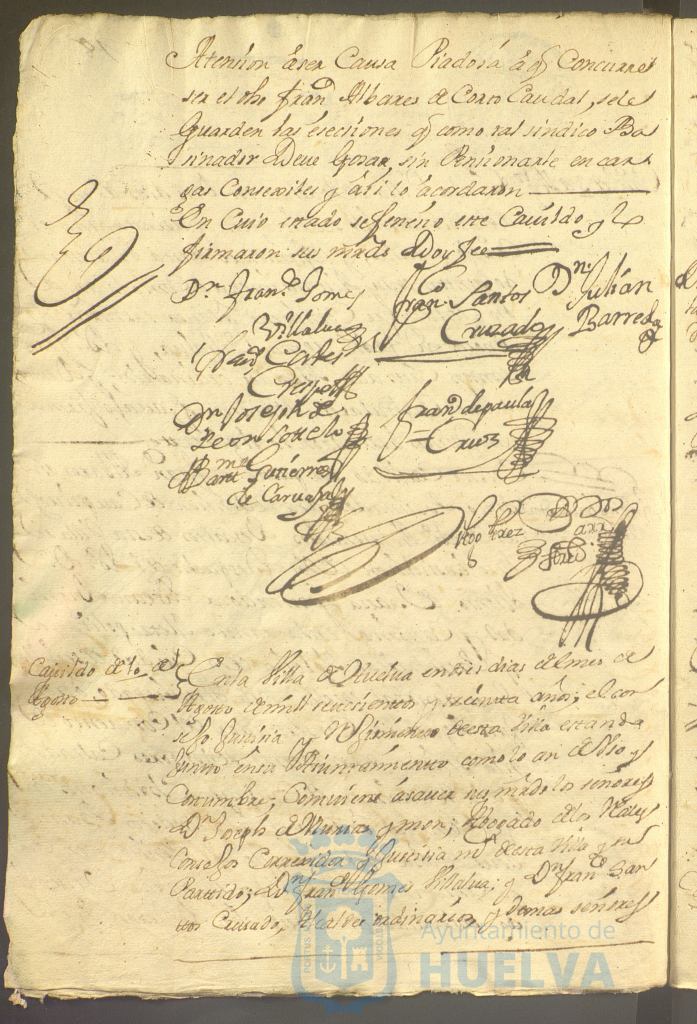 Atencion âser Causa Piadosa â q̃ Concurre
ser el dho Fran.co Albares de Corto Caudal, sele
Guarden las esecciones q̃ como tal sindico
sinador Deve Gosar sin Pensionarle en car
gas Consexiles y âsi lo âcordaron
En Cuio estado sefenecio este Cavildo y lo
firmaron sus mrds Doy fee
Dn Fran.co Gomes
Villalva
Fran.co Santos
Cruzado
Dn Julián
Barreda
Fran.co Cortes
Crespo
Dn Joseph de
Leon Sotelo
Fran.co de paula
Cruz
Barme Gutierres
de Carvajal
Cavildo de
Agosto
En la Villa de Huelva en tres dias del mes de
Agosto de mill setecientos y sesenta años; el con
sejo Justicia y Regimiento de esta Villa estando
Junto en su Aiuntamiento como lo an de Uso y
Costumbre, Comviene âsaver sus mrds los señores
Dn Joseph de Murias y mon, Abogado de los Reales
Consejos Correxidor y Justicia mr de esta Villa y su
Partido; Dn Fran.co Gomes Villalva; y Dn Fran.co San
ttos Crusado, Alcaldes ordinarios y demas señores
Ayuntamiento de
HUELVA